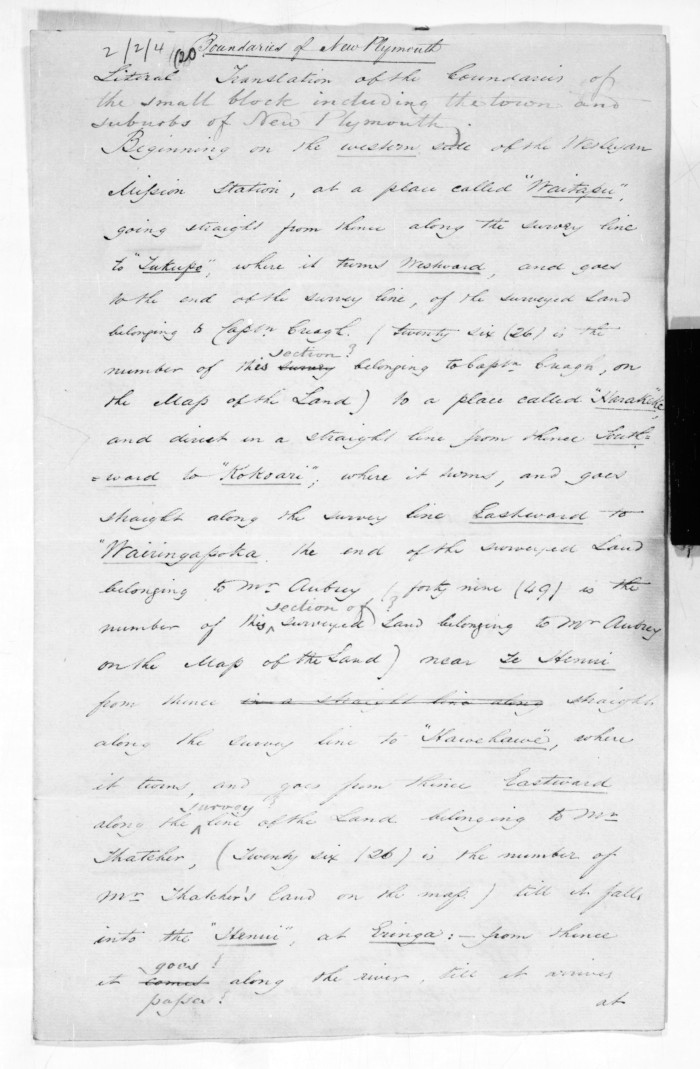 2/2/4 (20 Boundaries of New Plymouth
Literal Translation of the boundaries of
the small block including the town and
suburbs of New Plymouth.
Beginning on the western side of the Wesleyan
Mission Station, at a place called "Waitapu",
going straight from thence along the survey line
to "Tukupo", where it turns Westward, and goes
to the end of the survey line, of the surveyed Land
belonging to Captn Creagh. (twenty six (26) is the
section?
number of this survey belonging to Captn Creagh, on
the Map of the Land) to a place called "Harakeke",
and direct in a straight line from thence South=
=ward to "Kokoari"; where it turns, and goes
straight along the survey line Eastward to
"Wairingapoka the end of the surveyed Land
belonging to Mr Aubrey (forty nine (49) is the
section of?
number of this surveyed Land belonging to Mr Aubrey
on the Map of the Land) near Te Henui
from thence in a straight line along straight
along the survey line to "Hawehawe", where
it turns, and goes from thence Eastward
survey?
along the line of the Land belonging to Mr
Thatcher, (Twenty six (26) is the number of
Mr Thatcher's land on the map) till it falls
into the "Henui", at Eringa: - from thence
goes?
it comes along the river, till it arrives
passes?
at